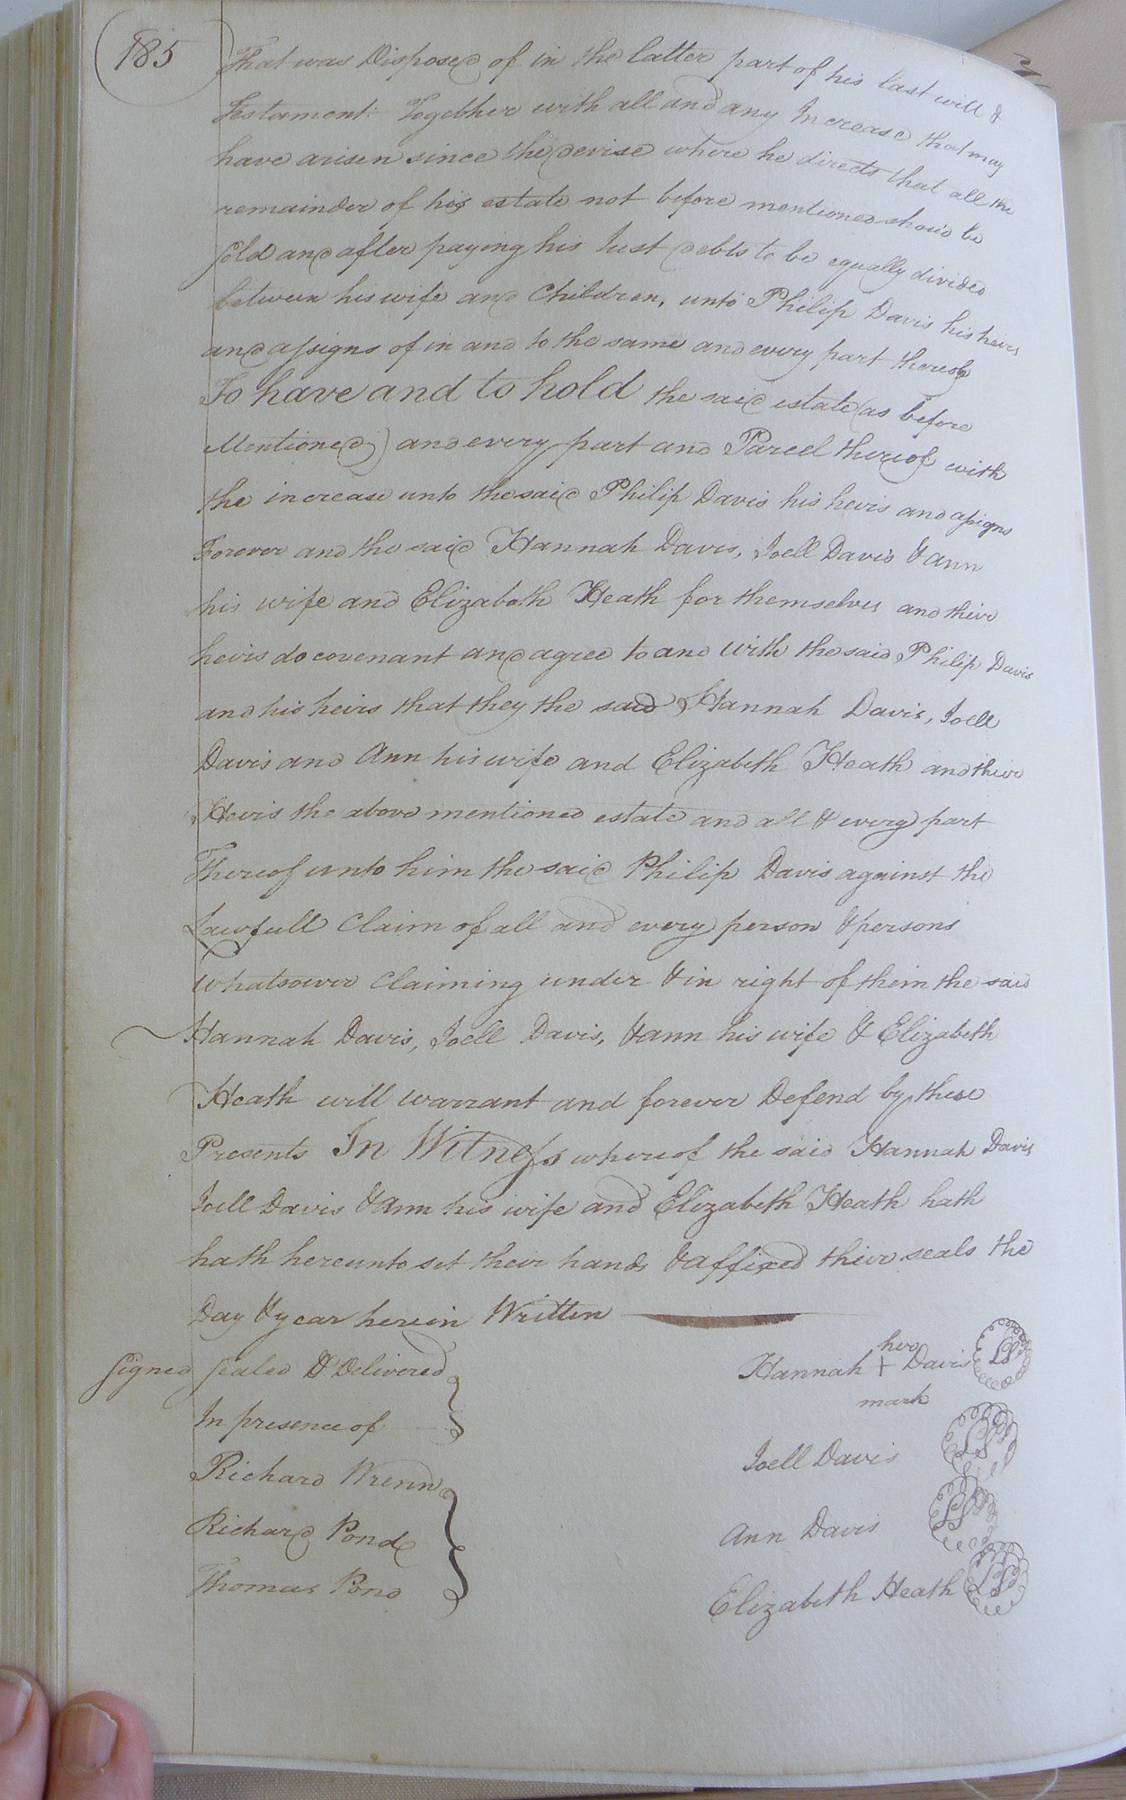 185
That was Disposed of in the latter part of his last will &
Testament: Together with all and any Increase that may
have arisen since the devise where he directs that all the
remainder of his estate not before mentioned shoud be
Sold and after paying his Just debts to be equally divided
between his wife and Children, unto Philip Davis his heirs
and assigns of in and to the same and every part thereof
To have and to hold the said estate (as before
Mentioned) and every part and Parcel thereof with
the increase unto the said Philip Davis his heirs and assigns
Forever and the said Hannah Davis, Joell Davis & Ann
his wife and Elizabeth Heath for themselves and their
heirs do covenant and agree to and with the said Philip Davis
and his heirs that they the said Hannah Davis, Joell
Davis and Ann his wife and Elizabeth Heath and their
Heirs the above mentioned estate and all & every part
Thereof unto him the said Philip Davis against the
Lawfull Claim of all and every person & persons
whatsoever Claiming under & in right of them the said
Hannah Davis, Joell Davis, & Ann his wife & Elizabeth
Heath will warrant and forever Defend by these
Presents In Witness whereof the said Hannah Davis
Joell Davis & Ann his wife and Elizabeth Heath hath
hath hereunto set their hands & affixed their seals the
Day & year herein Written
Signed Sealed & Delivered
In presence of
Richard Wrenn
Richard Pond
Thomas Pond
her
Hannah + Davis LS
mark
Joell Davis LS
Ann Davis LS
Elizabeth Heath LS